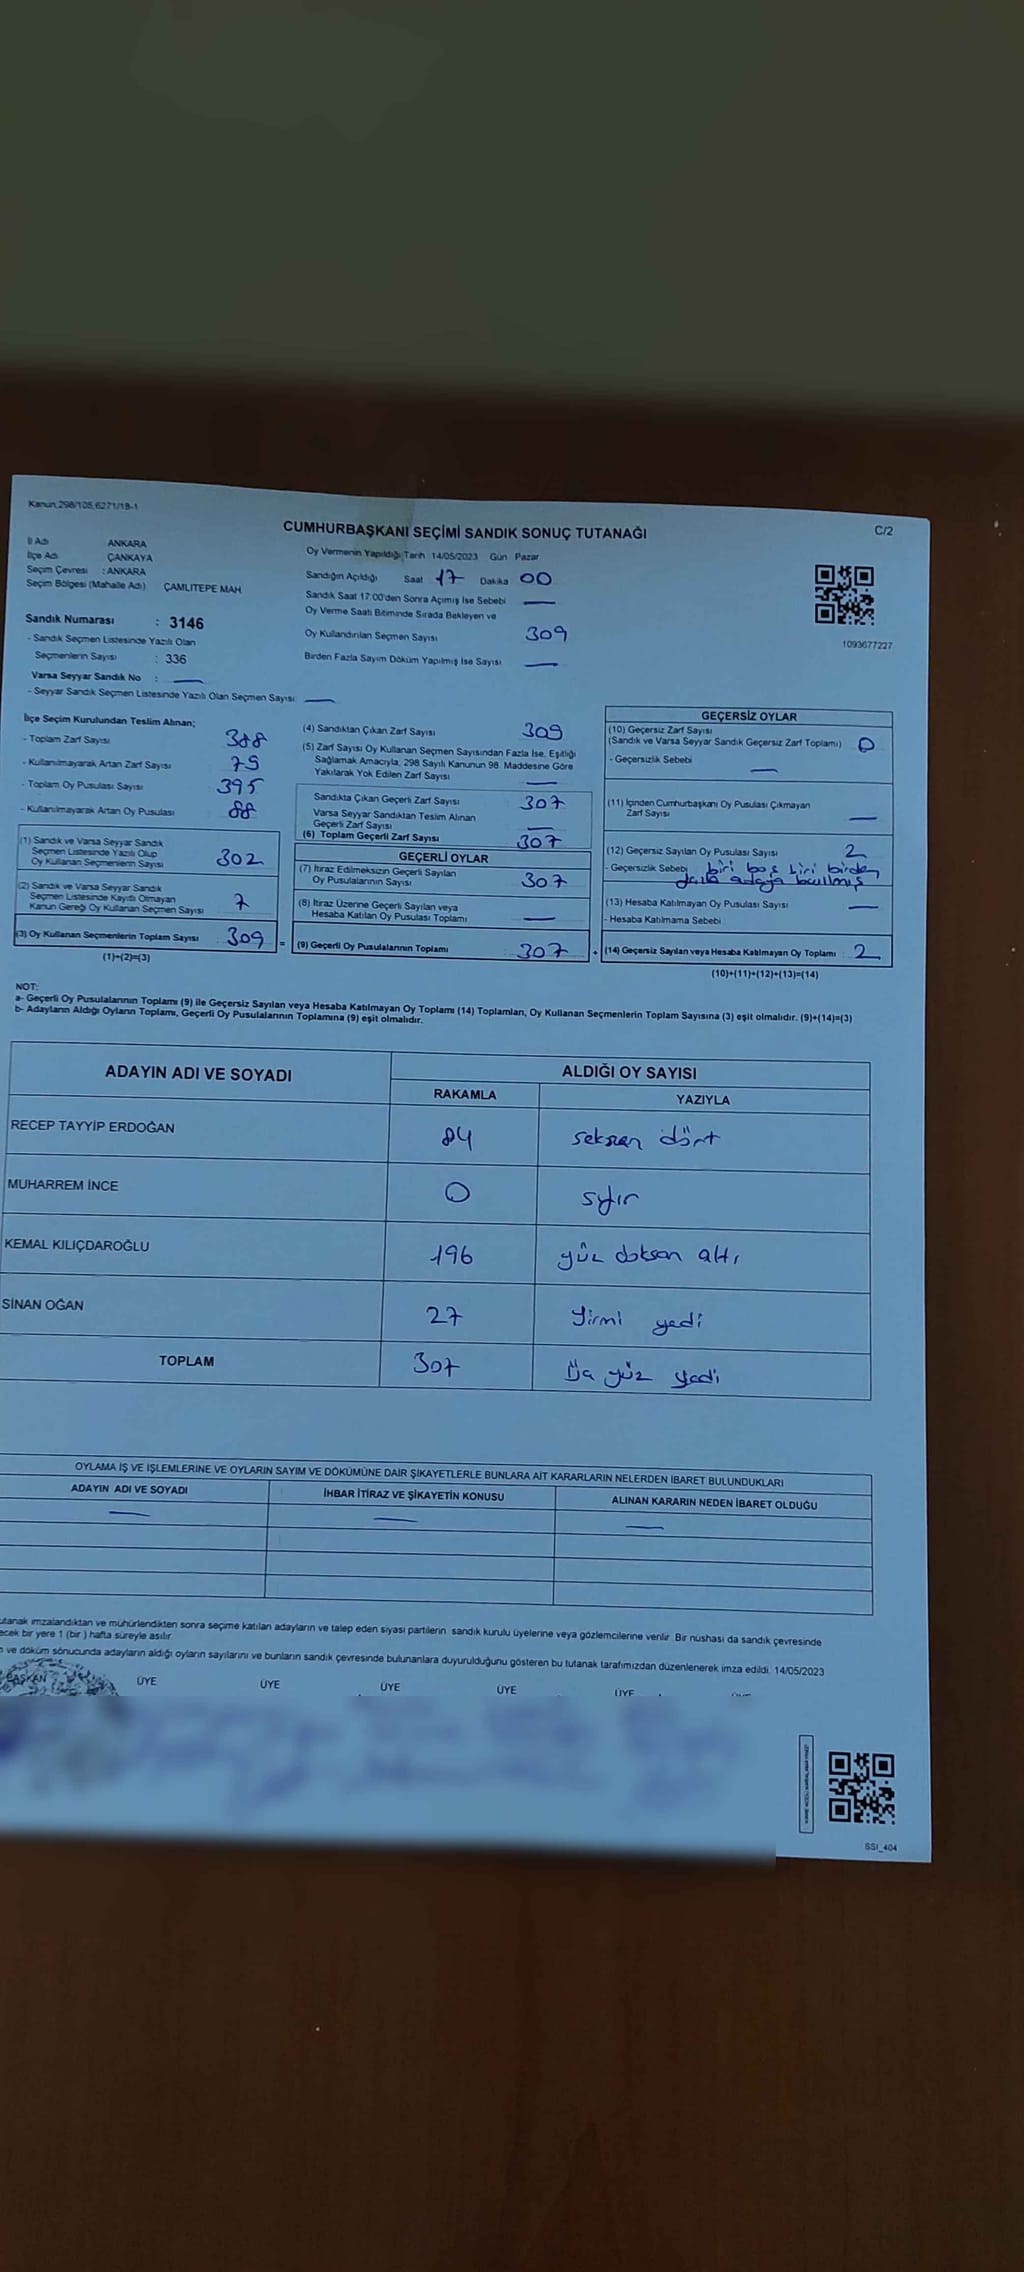 Kanun:298/105,6271/18-1
CUMHURBAŞKANI SEÇİMİ SANDIK SONUÇ TUTANAĞI
C/2
İl Adı ANKARA
İlçe Adı ÇANKAYA
Seçim Çevresi : ANKARA
Seçim Bölgesi (Mahalle Adı) ÇAMLITEPE MAH
Sandık Numarası : 3146
- Sandık Seçmen Listesinde Yazılı Olan
Seçmenlerin Sayısı : 336
Varsa Seyyar Sandık No :
- Seyyar Sandık Seçmen Listesinde Yazılı Olan Seçmen Sayısı
Oy Vermenin Yapıldığı Tarih 14/05/2023 Gün Pazar
Sandığın Açıldığı Saat 17 Dakika 00
Sandık Saat 17:00'den Sonra Açımış İse Sebebi
Oy Verme Saati Bitiminde Sırada Bekleyen ve
Oy Kullandırılan Seçmen Sayısı 309
Birden Fazla Sayım Döküm Yapılmış İse Sayısı
1093677227
İlçe Seçim Kurulundan Teslim Alınan;
- Toplam Zarf Sayısı 388
- Kullanılmayarak Artan Zarf Sayısı 79
- Toplam Oy Pusulası Sayısı 395
- Kullanılmayarak Artan Oy Pusulası 88
(1) Sandık ve Varsa Seyyar Sandık
Seçmen Listesinde Yazılı Olup
Oy Kullanan Seçmenlerin Sayısı 302
(2) Sandık ve Varsa Seyyar Sandık
Seçmen Listesinde Kayıtlı Olmayan
Kanun Gereği Oy Kullanan Seçmen Sayısı 7
(3) Oy Kullanan Seçmenlerin Toplam Sayısı 309 =
(1)+(2)=(3)
(4) Sandıktan Çıkan Zarf Sayısı 309
(5) Zarf Sayısı Oy Kullanan Seçmen Sayısından Fazla İse, Eşitliği
Sağlamak Amacıyla, 298 Sayılı Kanunun 98. Maddesine Göre
Yakılarak Yok Edilen Zarf Sayısı
Sandıkta Çıkan Geçerli Zarf Sayısı 307
Varsa Seyyar Sandıktan Teslim Alınan
Geçerli Zarf Sayısı
(6) Toplam Geçerli Zarf Sayısı 307
GEÇERLİ OYLAR
(7) İtiraz Edilmeksizin Geçerli Sayılan
Oy Pusulalarının Sayısı 307
(8) İtiraz Üzerine Geçerli Sayılan veya
Hesaba Katılan Oy Pusulası Toplamı
(9) Geçerli Oy Pusulalarının Toplamı 307 +
GEÇERSİZ OYLAR
(10) Geçersiz Zarf Sayısı
(Sandık ve Varsa Seyyar Sandık Geçersiz Zarf Toplamı) 0
- Geçersizlik Sebebi
(11) İçinden Cumhurbaşkanı Oy Pusulası Çıkmayan
Zarf Sayısı
(12) Geçersiz Sayılan Oy Pusulası Sayısı 2
- Geçersizlik Sebebi biri boş biri birden
fazla adaya basılmış
(13) Hesaba Katılmayan Oy Pusulası Sayısı
- Hesaba Katılmama Sebebi
(14) Geçersiz Sayılan veya Hesaba Katılmayan Oy Toplamı 2
(10)+(11)+(12)+(13)=(14)
NOT:
a- Geçerli Oy Pusulalarının Toplamı (9) ile Geçersiz Sayılan veya Hesaba Katılmayan Oy Toplamı (14) Toplamları, Oy Kullanan Seçmenlerin Toplam Sayısına (3) eşit olmalıdır. (9)+(14)=(3)
b- Adayların Aldığı Oyların Toplamı, Geçerli Oy Pusulalarının Toplamına (9) eşit olmalıdır.
ADAYIN ADI VE SOYADI
ALDIĞI OY SAYISI
RAKAMLA YAZIYLA
RECEP TAYYİP ERDOĞAN 84 seksen dört
MUHARREM İNCE 0 sıfır
KEMAL KILIÇDAROĞLU 196 yüz doksan altı
SİNAN OĞAN 27 Yirmi yedi
TOPLAM 307 Üç yüz yedi
OYLAMA İŞ VE İŞLEMLERİNE VE OYLARIN SAYIM VE DÖKÜMÜNE DAİR ŞİKAYETLERLE BUNLARA AİT KARARLARIN NELERDEN İBARET BULUNDUKLARI
ADAYIN ADI VE SOYADI İHBAR İTİRAZ VE ŞİKAYETİN KONUSU ALINAN KARARIN NEDEN İBARET OLDUĞU
utanak imzalandıktan ve mühürlendikten sonra seçime katılan adayların ve talep eden siyasi partilerin sandık kurulu üyelerine veya gözlemcilerine verilir. Bir nüshası da sandık çevresinde
ecek bir yere 1 (bir) hafta süreyle asılır
ve döküm sonucunda adayların aldığı oyların sayılarını ve bunların sandık çevresinde bulunanlara duyurulduğunu gösteren bu tutanak tarafımızdan düzenlenerek imza edildi. 14/05/2023
BAŞKAN ÜYE ÜYE ÜYE ÜYE ÜYE
SSI_404